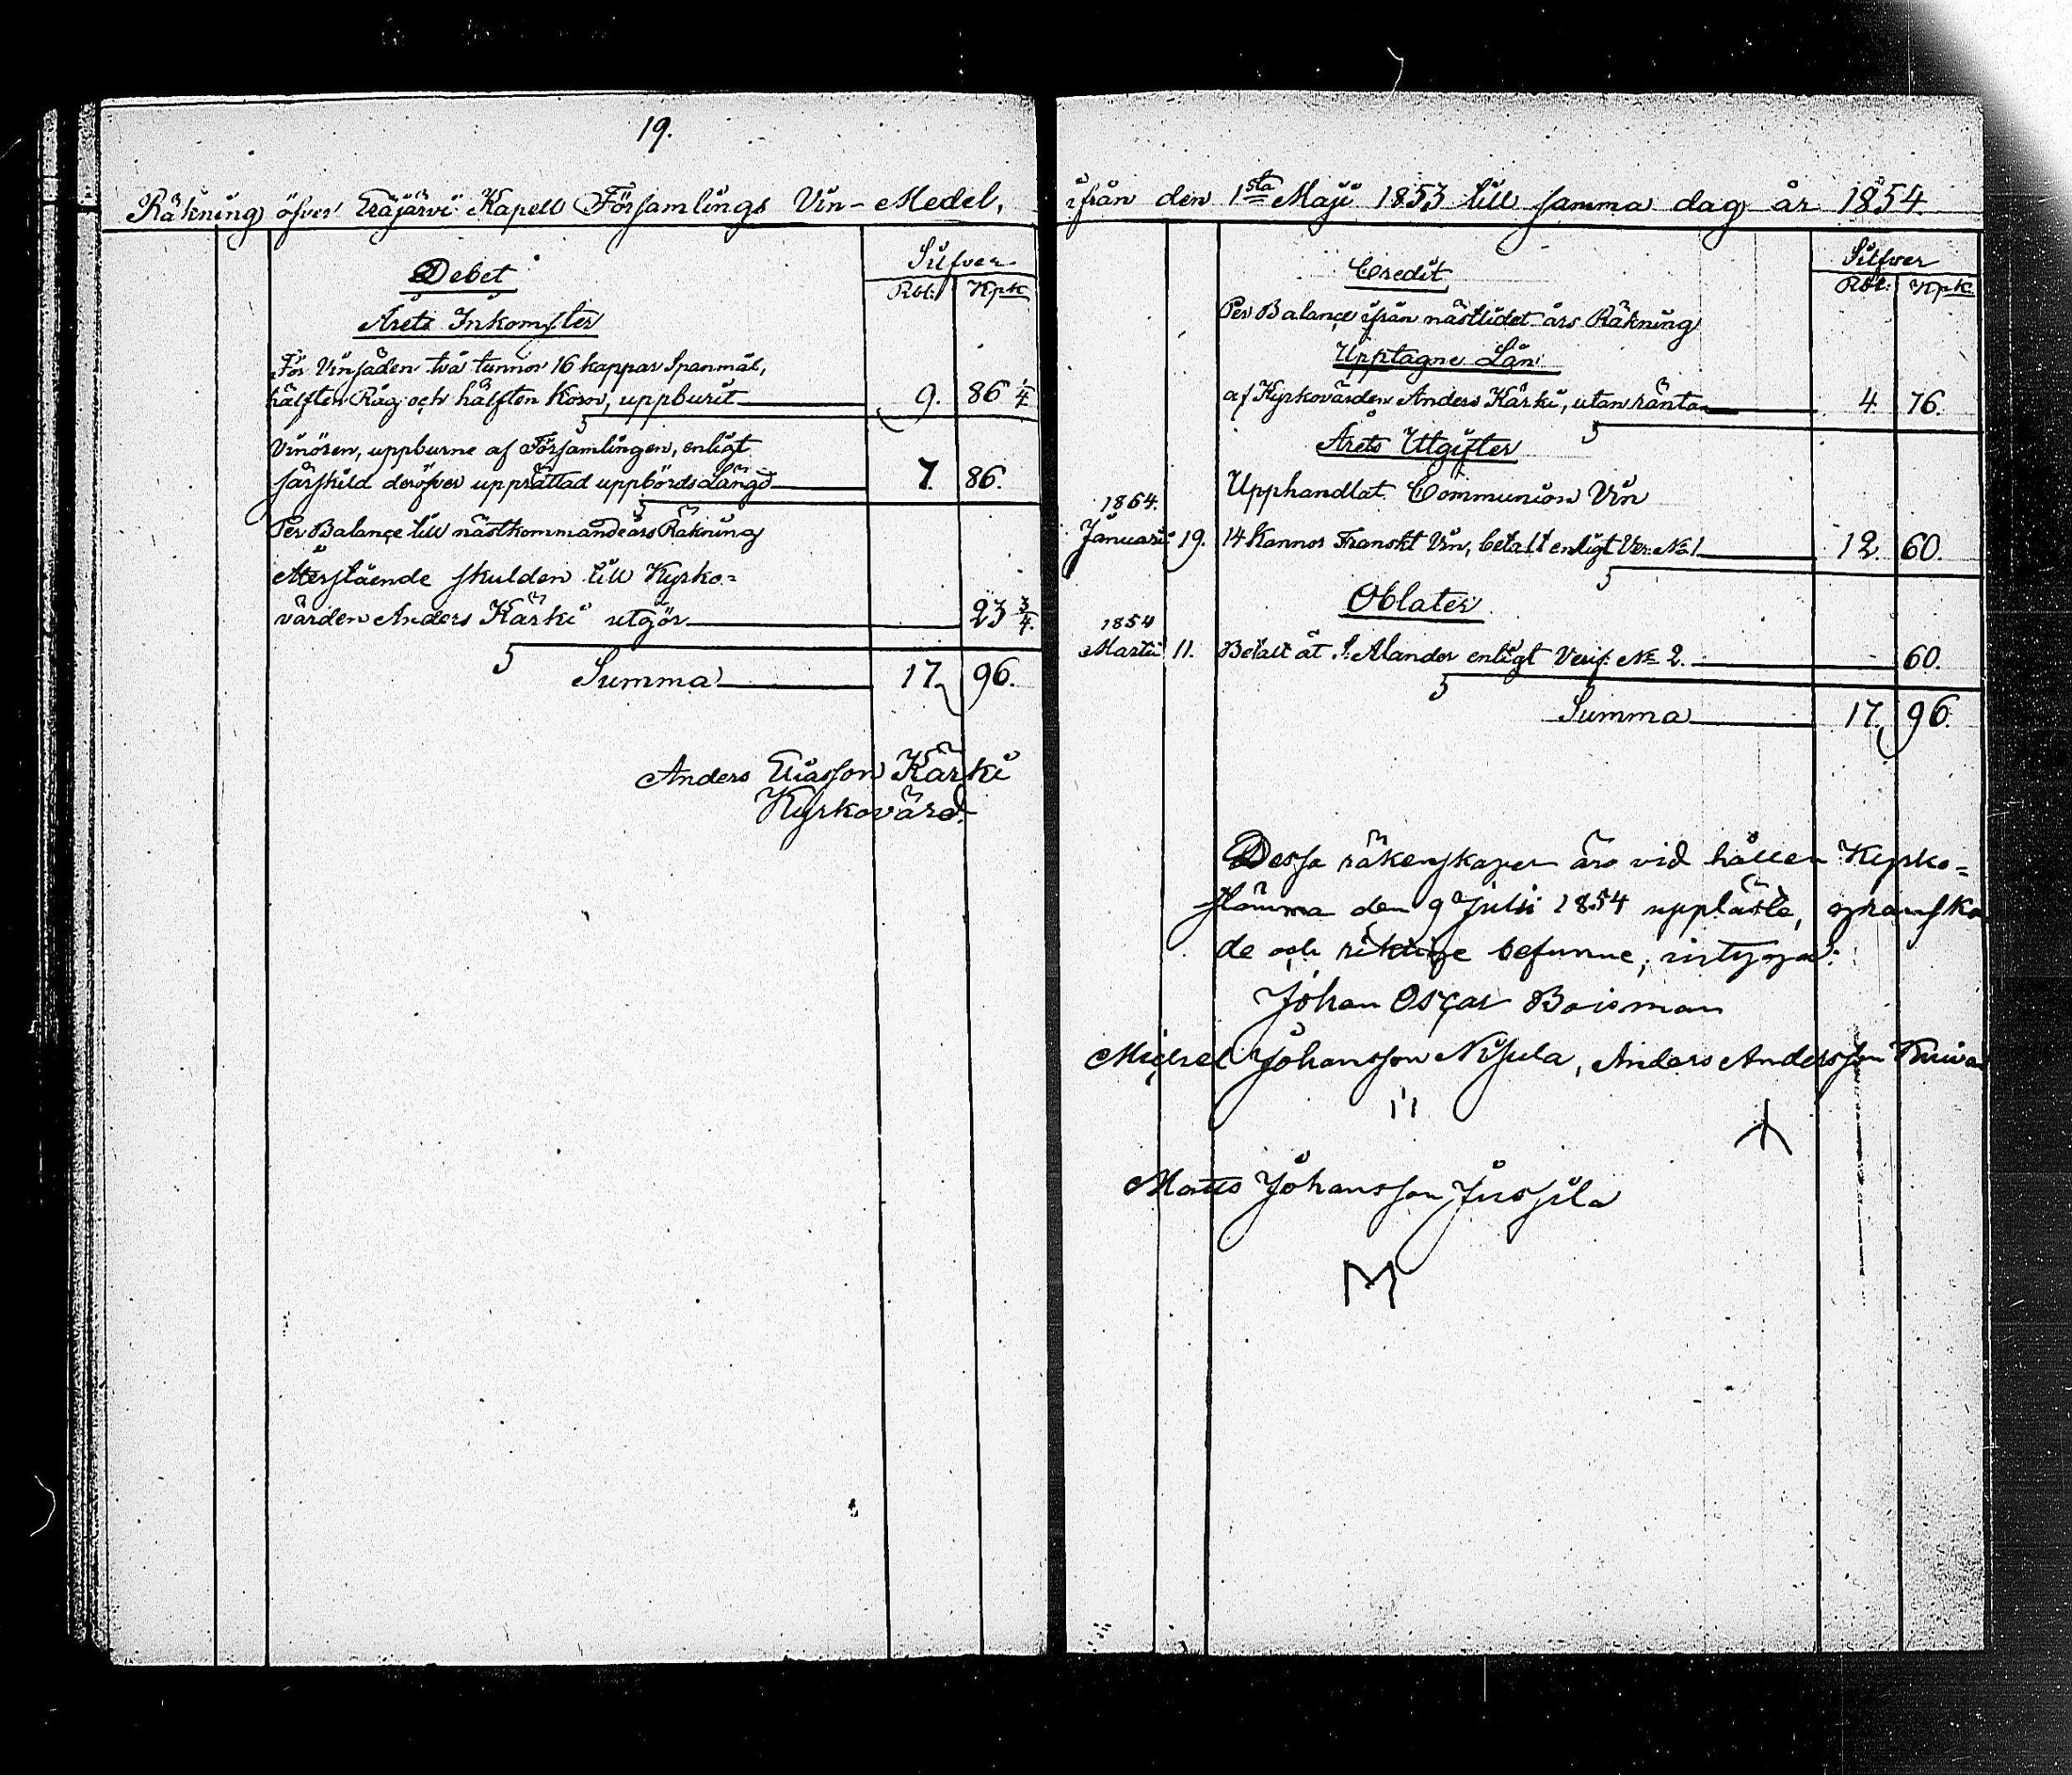 19.
Räkning öfver Eräjärvi Kapell Församlings Vin-Medel,
Debet
Silfver
Rbl: Kpk
Årets Inkomster
För Vinsäden två tunnor 16 kappar Spanmål,
hälften Råg och hälften Korn, uppburit 9. 86 1/4
Vinören, uppburne af Församlingen, enligt
särskild deröfver upprättad uppbördslängd 7. 86.
Per Balançe till nästkommande års Räkning
Återstående skulden till Kyrko=
värden Anders Kärki utgör 23 3/4.
Summa 17. 96.
Anders Eliasson Kärki
Kyrkovärd.
ifrån den 1sta Maji 1853 till samma dag år 1854.
Credit
Silfver
Rbl: Kpk
Per Balançe ifrån nästlidet års Räkning
Upptagne Lån
af Kyrkovärden Anders Kärki, utan ränta 4 76.
Årets Utgifter
Upphandlat Communion Vin
1864.
Januari 19. 14 Kannor Franskt Vin, betalt enligt Ver: No 1 12. 60.
Oblater
1854
Martii 11. Betalt åt Alander enligt Verif: No 2. 60.
Summa 17. 96.
Dessa räkenskaper äro vid hållen Kyrko=
stämma den 9 Julii 1854 uppläste, granska
de och riktige befunne, intyga:
Johan Oscar Boisman
Michel Johansson Nisula, Anders Andersson
Matts Johansson Jussila
M